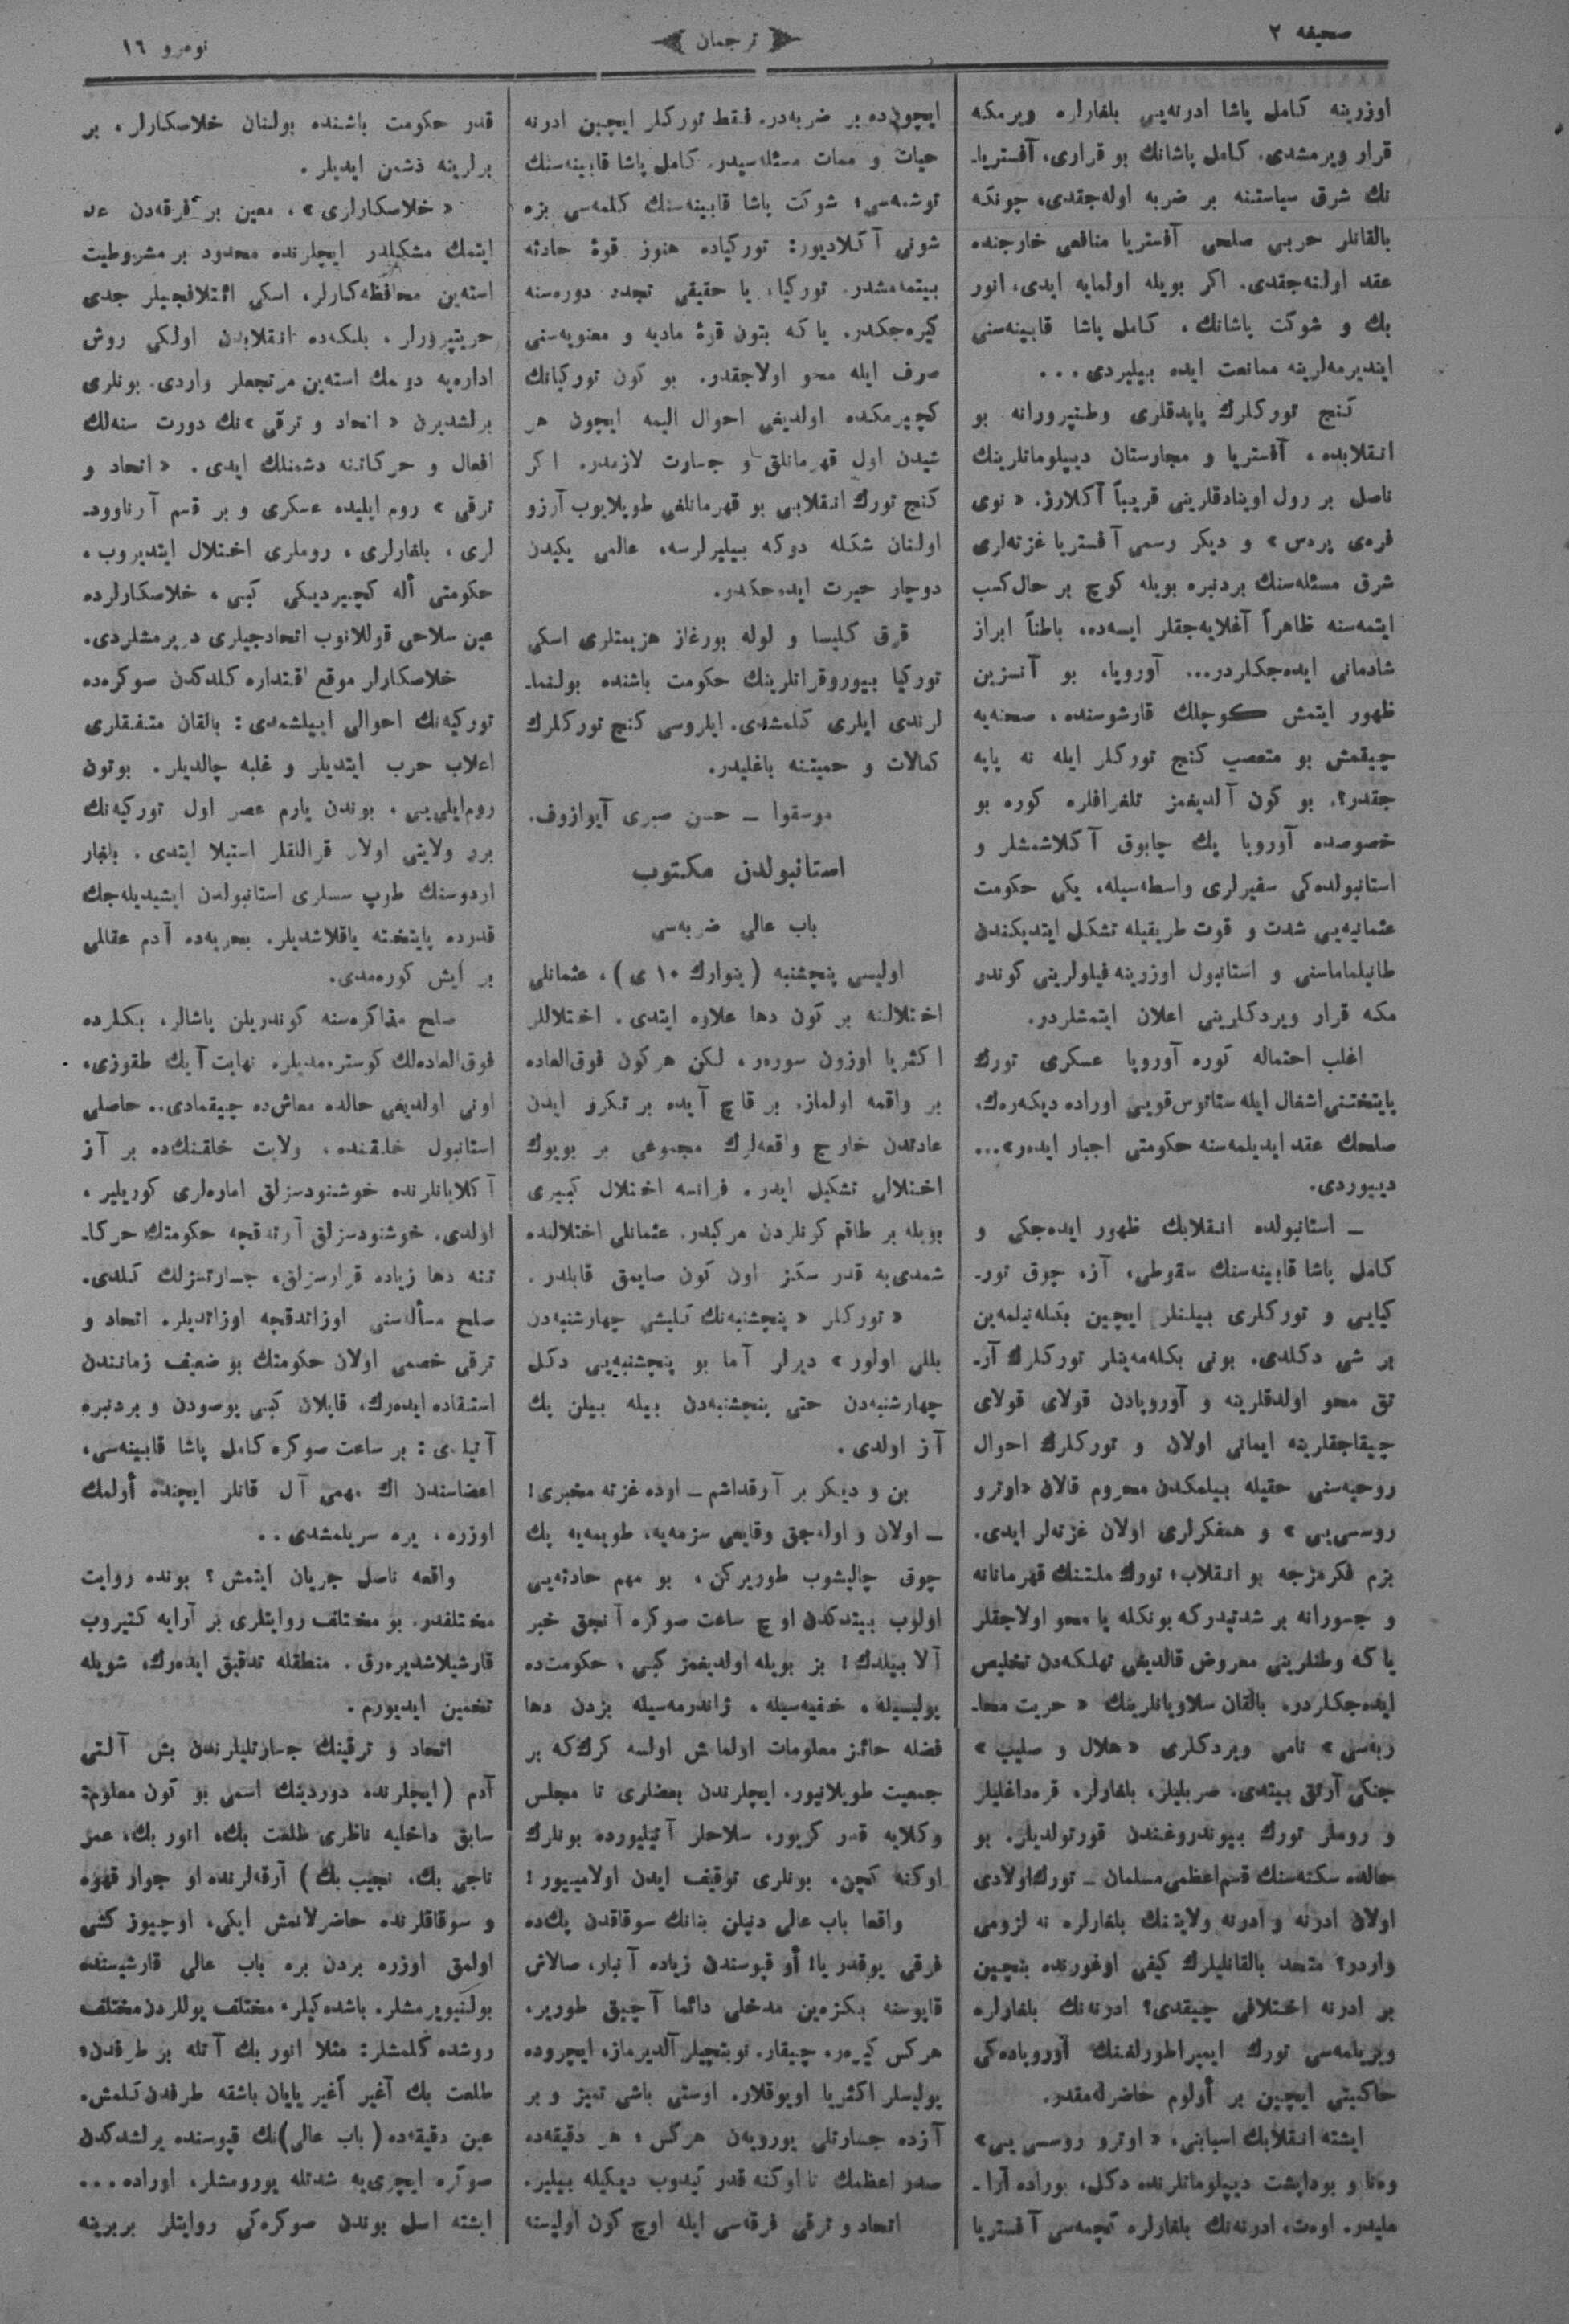 صحيفه ٢
ترجمان
نومرو ١٦
اوزرينه كامل پاشا ادرنه‌يى بلغارلره ويرمكه
قرار ويرمشدى. كامل پاشانك بو قرارى، آفستريا-
نك شرق سياستنه بر ضربه اوله‌جقدى، چونكه
بالقانلر حربى صلحى آفستريا منافعى خارجنده
عقد اولنه‌جقدى. اكر بويله اولمايه ايدى، انور
بك و شوكت پاشانك، كامل پاشا قابينه‌سنى
اينديرمه‌لرينه ممانعت ايده بيليردى...
كنج توركلرك ياپدقلرى وطنپرورانه بو
انقلابده، آفستريا و مجارستان ديپلوماتلرينك
ناصل بر رول اوينادقلرينى قريباً آكلارز. «نوى
فره‌ى پرەس» و ديكر رسمى آفستريا غزته‌لرى
شرق مسئله‌سنك بردنبره بويله كوچ بر حال كسب
ايتمه‌سنه ظاهراً آغلايه‌جقلر ايسه‌ده، باطناً ابراز
شادمانى ايده‌جكلردر... آوروپا، بو آنسزين
ظهور ايتمش كوچلك قارشوسنده، صحنه‌يه
چيقمش بو متعصب كنج توركلر ايله نه ياپه
جقدر؟. بو كون آلديغمز تلغرافلره كوره بو
خصوصده آوروپا پك چابوق آكلاشمشلر و
استانبولده‌كى سفيرلرى واسطه‌سيله، يكى حكومت
عثمانيه‌يى شدت و قوت طريقيله تشكل ايتديكندن
طانيلماماسنى و استانبول اوزرينه فيلولرينى كوندر
مكه قرار ويردكلرينى اعلان ايتمشلردر.
اغلب احتماله كوره آوروپا عسكرى تورك
پايتختنى اشغال ايله ستاتوس قويى اوراده ديكه‌رەك،
صلحك عقد ايديلمه‌سنه حكومتى اجبار ايدەر»...
دييوردى.
— استانبولده انقلابك ظهور ايده‌جكى و
كامل پاشا قابينه‌سنك سقوطى، آزه چوق تور-
كيايى و توركلرى بيلنلر ايچين بكله‌نيلمه‌ين
بر شى دكلدى. بونى بكله‌مه‌ينلر توركلرك آر-
تق محو اولدقلرينه و آوروپادن قولاى قولاى
چيقاجقلرينه ايمانى اولان و توركلرك احوال
روحيه‌سنى حقيله بيلمكدن محروم قالان «اوترو
روسسى‌يى» و همفكرلرى اولان غزته‌لر ايدى.
بزم فكرمزجه بو انقلاب، تورك ملتنك قهرمانانه
و جسورانه بر شدتيدركه بونكله يا محو اولاجقلر
ياكه وطنلرينى معروض قالديغى تهلكه‌دن تخليص
ايده‌جكلردر. بالقان سلاويانلرينك «حريت محا-
ربه‌سى» نامى ويردكلرى «هلال و صليب»
جنكى آرتق بيتدى. صربليلر، بلغارلر، قره‌داغليلر
و روملر تورك بيوندروغندن قورتولديلر. بو
حالده سكنه‌سنك قسم اعظمى مسلمان — تورك اولادى
اولان ادرنه و ادرنه ولايتنك بلغارلره نه لزومى
واردر؟ متحد بالقانليلرك كيفى اوغورنده بنچين
بر ادرنه اختلافى چيقدى؟ ادرنه‌نك بلغارلره
ويريلمه‌سى تورك ايمپراطورلغنك آوروپاده‌كى
حاكميتى ايچين بر أولوم حاضرله‌مقدر.
ايشته انقلابك اسبابنى، «اوترو روسسى‌يى»
وه‌نا و بوداپشت ديپلوماتلرنده دكل، بوراده آرا-
مليدر. اوت، ادرنه‌نك بلغارلره كچمه‌سى آفستريا
ايچون‌ده بر ضربه‌در. فقط توركلر ايچين ادرنه
حيات و ممات مسئله‌سيدر. كامل پاشا قابينه‌سنك
توشمه‌سى، شوكت پاشا قابينه‌سنك كلمه‌سى بزه
شونى آكلاديور: توركياده هنوز قوۀ حادثه
بيتمه‌مشدر. توركيا، يا حقيقى تجدد دوره‌سنه
كيره‌جكدر. ياكه بتون قوۀ ماديه و معنويه‌سنى
صرف ايله محو اولاجقدر. بو كون توركيانك
كچيرمكده اولديغى احوال اليمه ايچون هر
شيدن اول قهرمانلق و جسارت لازمدر. اكر
كنج تورك انقلابى بو قهرمانلغى طوپلايوب آرزو
اولنان شكله دوكه بيليرلرسه، عالمى يكيدن
دوچار حيرت ايده‌جكدر.
قرق كليسا و لوله بورغاز هزيمتلرى اسكى
توركيا بيوروقراتلرينك حكومت باشنده بولنما-
لرندى ايلرى كلمشدى. ايلروسى كنج توركلرك
كمالات و حميتنه باغليدر.
موسقوا — حسن صبرى آيوازوف.
استانبولدن مكتوب
باب عالى ضربه‌سى
اوليسى پنچشنبه (ينوارك ١٠ ى)، عثمانلى
اختلالنه بر كون دها علاوه ايتدى. اختلاللر
اكثريا اوزون سورەر، لكن هر كون فوق‌العاده
بر واقعه اولماز. بر قاچ آيده بر تكرر ايدن
عادتدن خارج واقعه‌لرك مجموعى بر بويوك
اختلالى تشكيل ايدر. فرانسه اختلال كبيرى
بويله بر طاقم كونلردن مركبدر. عثمانلى اختلالنده
شمدى‌يه قدر سكز اون كون صايمق قابلدر.
«توركلر «پنچشنبه‌نك كليشى چهارشنبه‌دن
بللى اولور» ديرلر آما بو پنچشنبه‌يى دكل
چهارشنبه‌دن حتى پنچشنبه‌دن بيله بيلن پك
آز اولدى.
بن و ديكر بر آرقداشم — اوده غزته مخبرى!
— اولان و اوله‌جق وقايعى سزمه‌يه، طويمه‌يه پك
چوق چاليشوب طوريركن، بو مهم حادثه‌يى
اولوب بيتدكدن اوچ ساعت صوكره آنجق خبر
آلا بيلدك! بز بويله اولديغمز كبى، حكومت‌ده
پوليسيله، خفيه‌سيله، ژاندرمه‌سيله بزدن دها
فضله حائز معلومات اولمامش اولسه كرك‌كه بر
جمعيت طوپلانيور. ايچلرندن بعضلرى تا مجلس
وكلايه قدر كريور، سلاحلر آتيليورده بونلرك
اوكنه كچن، بونلرى توقيف ايدن اولاميييور!
واقعا باب عالى دنيلن بنانك سوقاقدن پك‌ده
فرقى يوقدر يا! أو قپوسندن زياده آنبار، صالاش
قاپوسنه بكزه‌ين مدخلى دائما آچيق طورير،
هركس كيرەر، چيقار. نوبتچيلر آلديرماز، ايچروده
پوليسلر اكثريا اويوقلار. اوستى باشى تميز و بر
آزده جسارتلى يورويەن هركس، هر دقيقه‌ده
صدر اعظمك تا اوكنه قدر كيدوب ديكيله بيلير.
اتحاد و ترقى فرقه‌سى ايله اوچ كون اوليسنه
قدر حكومت باشنده بولنان خلاصكارلر، بر
برلرينه دشمن ايديلر.
«خلاصكارلرى»، معين بر فرقه‌دن عد
ايتمك مشكلدر ايچلرنده محدود بر مشروطيت
استه‌ين محافظه‌كارلر، اسكى ائتلافجيلر جدى
حريتپرورلر، بلكه‌ده انقلابدن اولكى روش
اداره‌يه دونمك استه‌ين مرتجعلر واردى. بونلرى
برلشديرن «اتحاد و ترقى»نك دورت سنه‌لك
افعال و حركاتنه دشمنلك ايدى. «اتحاد و
ترقى» روم ايليده عسكرى و بر قسم آرناوود-
لرى، بلغارلرى، روملرى اختلال ايتديروب،
حكومتى أله كچيرديكى كبى، خلاصكارلرده
عين سلاحى قوللانوب اتحادجيلرى دويرمشلردى.
خلاصكارلر موقع اقتداره كلدكدن صوكره‌ده
توركيه‌نك احوالى اييلشمدى: بالقان متفقلرى
اعلان حرب ايتديلر و غلبه چالديلر. بوتون
روم‌ايلى‌يى، بوندن يارم عصر اول توركيه‌نك
برر ولايتى اولان قراللقلر استيلا ايتدى. بلغار
اردوسنك طوپ سسلرى استانبولدن ايشيديله‌جك
قدرده پايتخته ياقلاشديلر. بحريه‌ده آدم عقللى
بر ايش كوره‌مدى.
صلح مذاكره‌سنه كوندريلن پاشالر، بكلرده
فوق‌العاده‌لك كوستره‌مديلر. نهايت آيك طقوزى،
اونى اولديغى حالده معاش‌ده چيقمادى.. حاصلى
استانبول خلقنده، ولايت خلقنك‌ده بر آز
آكلايانلرنده خوشنودسزلق اماره‌لرى كوريلير،
اولدى. خوشنودسزلق آرتدقجه حكومتك حركا-
تنه دها زياده قرارسزلق، جسارتسزلك كلدى.
صلح مسأله‌سنى اوزاتدقجه اوزاتديلر. اتحاد و
ترقى خصمى اولان حكومتك بو ضعيف زمانندن
استفاده ايدەرك، قاپلان كبى پوصودن و بردنبره
آتيلدى: بر ساعت صوكره كامل پاشا قابينه‌سى،
اعضاسندن اك مهمى آل قانلر ايچنده أولمك
اوزره، يره سريلمشدى..
واقعه ناصل جريان ايتمش؟ بونده روايت
مختلفدر. بو مختلف روايتلرى بر آرايه كتيروب
قارشيلاشديره‌رق. منطقله تدقيق ايدەرك، شويله
تخمين ايديورم.
اتحاد و ترقينك جسارتليلرندن بش آلتى
آدم (ايچلرنده دوردينك اسمى بو كون معلوم:
سابق داخليه ناظرى طلعت بك، انور بك، عمر
ناجى بك، نجيب بك) آرقه‌لرنده او جوار قهوه
و سوقاقلرنده حاضرلانمش ايكى، اوچيوز كشى
اولمق اوزره بردن بره باب عالى قارشيسنده
بولنيويرمشلر. باشده‌كيلر، مختلف يوللردن مختلف
روشده كلمشلر: مثلا انور بك آتله بر طرفدن،
طلعت بك آغير آغير يايان باشقه طرفدن كلمش.
عين دقيقه‌ده (باب عالى)نك قپوسنده برلشدكدن
صوكره ايچرى‌يه شدتله يورومشلر، اوراده...
ايشته اسل بوندن صوكره‌كى روايتلر بربرينه